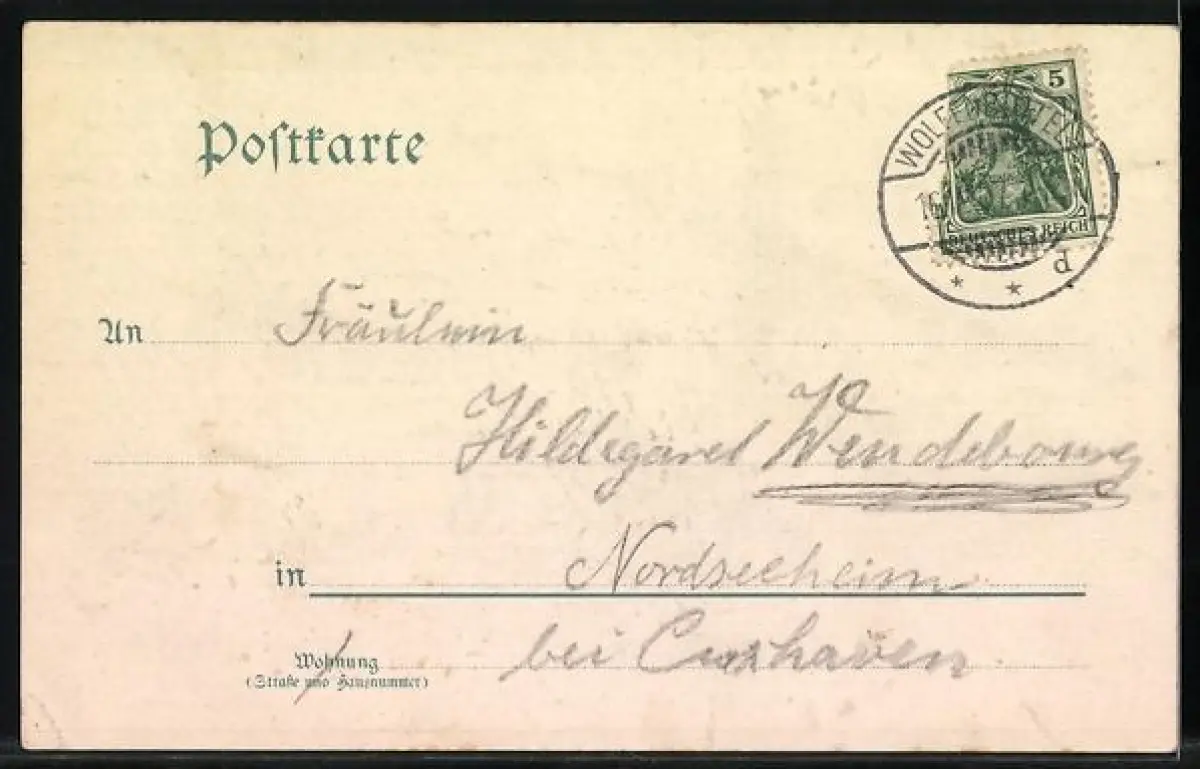 Postkarte
5
WOLFENBÜTTEL
16
DEUTSCHES REICH
d
An Fräulein
Hildegard Wendebourg
in Nordseeheim
Wohnung bei Cuxhaven
(Straße und Hausnummer)